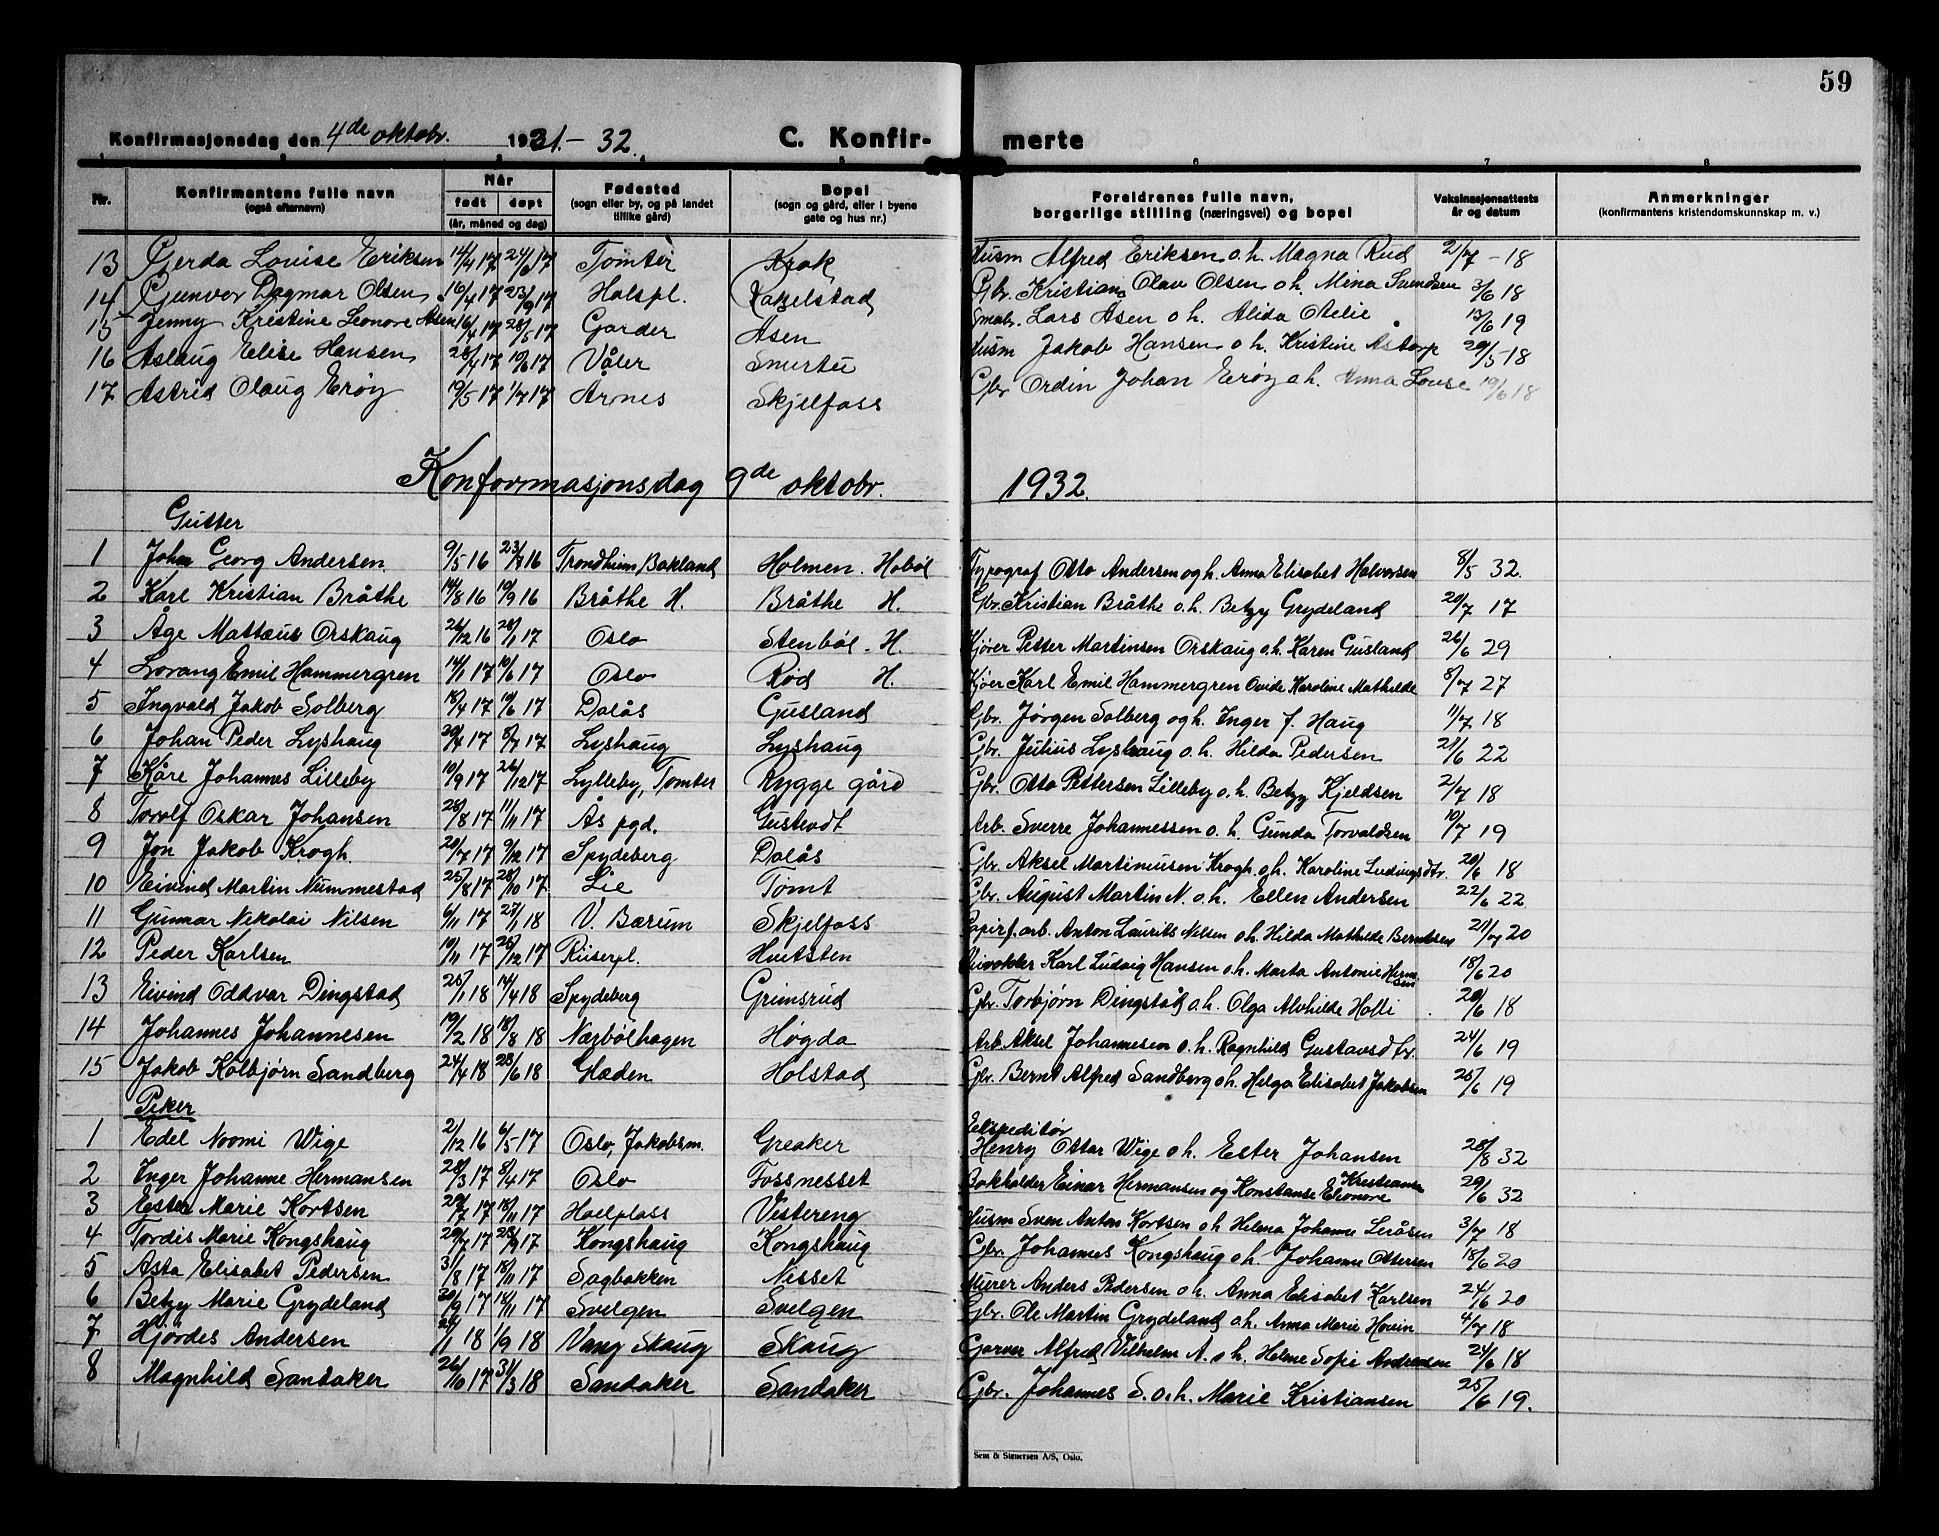 59
Konfirmasjonsdag den 4de oktobr. 1931.-32. C. Konfir- merte
5 6 7 8
Nr. Konfirmantens fulle navn (også efternavn) Når født døpt (år, måned og dag) Fødested (sogn eller by, og på landet tillike gård) Bopel (sogn og gård, eller i byene gate og hus nr.) Foreldrenes fulle navn, borgerlige stilling (næringsvei) og bopel Vaksinasjonsattests år og datum Anmerkninger (konfirmantens kristendomskunnskap m. v.)
13 Gjerda Louise Eriksen 14/4 17 24/6 17 Tomter Krok Husm Alfred Eriksen o.h. Magna Rud 2/7 - 18
14 Gunvor Dagmar Olsen 16/4 17 23/9 17 Holspl. Kakelstad Gbr. Kristian Olav Olsen o h. Mina Svendsen 3/6 18
15 Jenny Kristine Leonore Åsen 16/4 17 28/5 17 Garder Åsen Smabr. Lars Åsen o h. Alida Ottelie 13/6 19
16 Aslaug Elise Hansen 28/4 17 10/6 17 Våler Smertu Husm Jakob Hansen o h. Kristine Åstorp 29/5 - 18
17 Astrid Olaug Erøy 19/5 17 1/7 17 Årnes Skjelfoss Gbr Ordin Johan Erøy o h. Anna Louse 19/6 18
Konformasjonsdag 9de oktobr. 1932.
Gutter
1 Johan Georg Andersen 9/5 16 23/7 16 Trondheim Bakland Holmen. Hobøl Typograf Otto Andersen og h. Anna Elisabet Halvorsen 8/5 32.
2 Karl Kristian Bråthe 14/8 16 10/9 16 Bråthe H. Bråthe H. Gbr. Kristian Bråthe o.h. Betzy Grydeland 20/7 17
3 Åge Mattæus Orskaug 26/12 16 28/1 17 Oslo Stenbøl. H. Kjører Petter Martinsen Orskaug o.h. Karen Gusland 26/6 29
4 Lorang Emil Hammergren 14/1 17 10/6 17 Oslo Rød H. Kjøer Karl Emil Hammergren Ovide Karoline Mathilde 8/7 27
5 Ingvald Jakob Solberg 18/4 17 10/6 17 Dalås Gusland Gbr. Jørgen Solberg og h. Inger f. Haug 11/7 18
6 Johan Peder Lyshaug 20/4 17 8/7 17 Lyshaug Lyshaug Gbr. Julius Lyshaug o.h. Hilda Pedersen 21/6 22
7 Kåre Johannes Lilleby 10/9 17 26/12 17 Lylleby, Tomter Rygge gård Gbr. Otto Pettersen Lilleby o.h. Betzy Kjeldsen 2/7 18
8 Torolf Oskar Johansen 28/8 17 11/11 17 Ås pgd. Gustvedt Arb. Sverre Johannessen o. h. Gunda Torvaldsen 10/7 19
9 Jon Jakob Krogh. 20/7 17 9/12 17 Spydeberg Dalås Gbr. Aksel Martiniusen Krogh o.h. Karoline Ludvigsdtr 20/6 18
10 Eivind Martin Nummestad 25/8 17 28/10 17. Lie Tomt Gbr. August Martin N. o.h. Ellen Andersen 22/6 22
11 Gunnar Nikolai Nilsen 6/11 17 27/1 18 V. Bærum Skjelfoss Papirf. arb. Anton Laurits Nilsen o h. Hilda Mathilde Berntsen 21/7 20
12 Peder Karlsen 10/11 17 26/12 17 Riiserpl. Hvitsten Karl Ludvig Hansen o.h. Marta Antonie Hermsen 18/6 20
13 Eivind Oddvar Dingstad 25/1 18 14/4 18 Spydeberg Grimsrud Gbr. Torbjørn Dingstad o.h. Olga Alvhilde Holli 20/6 18
14 Johannes Johannesen 19/2 18 18/8 18 Næsbølhagen Høgda Arb. Aksel Johannesen o.h. Ragnhild Gustavsdtr. 24/6 19
15 Jakob Kolbjørn Sandberg 24/4 18 23/6 18 Glæden Holstad Gbr. Bernt Alfred Sandberg o h. Helga Elisabet Jakobsen 25/6 19
Piker
1 Edel Noomi Wige 2/12 16 6/5 17 Oslo, Jakobsm. Greaker Ekspeditør Henry Ottar Wige o.h. Ester Johansen 28/8 32
2 Inger Johanne Hermansen 28/3 17 8/4 17 Oslo Fossnesset Bokholder Einar Hermansen og Konstanse Eleonore Kristiansen 29/6 32
3 Ester Marie Kortsen 29/7 17 18/11 17 Hoelplass Vistereng Husm Sven Anton Kortsen o h Helena Johanne Leråsen 3/7 18
4 Tordis Marie Kongshaug 29/7 17 23/9 17 Kongshaug Kongshaug Gbr. Johannes Kongshaug o h. Johanne Ottersen 18/6 20
5 Asta Elisabet Pedersen 31/8 17 18/11 17 Sagbakken Nesset Murer Anders Pedersen o h. Anna Elisabet Karlsen 24/6 20
6 Betzy Marie Grydeland 20/9 17 18/11 17 Svelgen Svelgen Gbr. Ole Martin Grydeland o h. Anna Marie Hovin 4/7 18
7 Hjørdes Andersen 24/1 18 1/9 18 Vang Skaug Skaug Garver Alfred Vilhelm A. o h. Helene Sofie Andresen 21/6 18
8 Magnhild Sandaker 26/10 17 31/3 18 Sandaker Sandaker Gbr. Johannes S. o.h. Marie Kristiansen 25/6 19.
Sem & Stenersen A/S, Oslo.